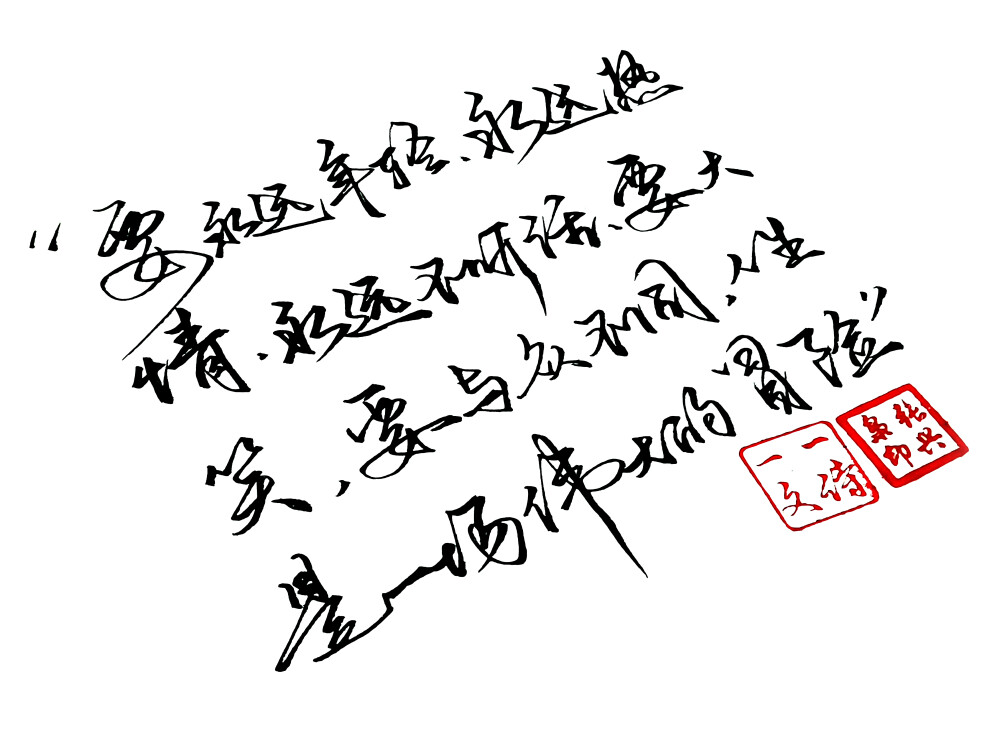 “要永远年轻、永远热
情、永远不听话、要大
笑、要与众不同、人生
是一场伟大的冒险”
一诗
一文
张兴
印